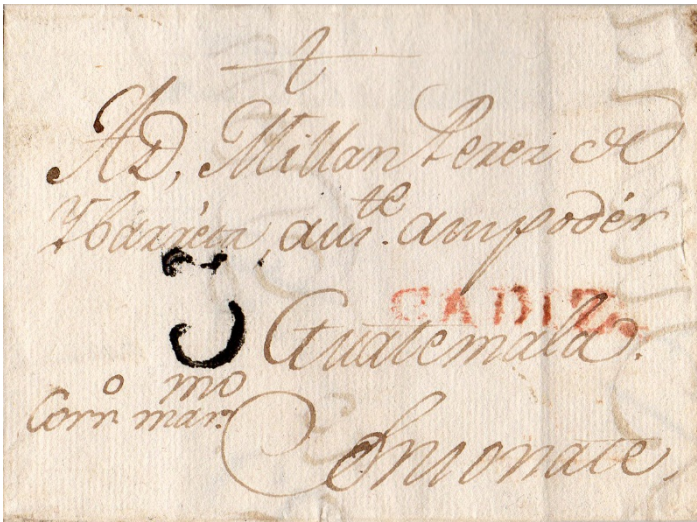 A D, Millan Perez de
Ybarreta, aus.te a su poder
3
CADIZ
Guatemala.
Corr.o mar.mo
Sonsonate,